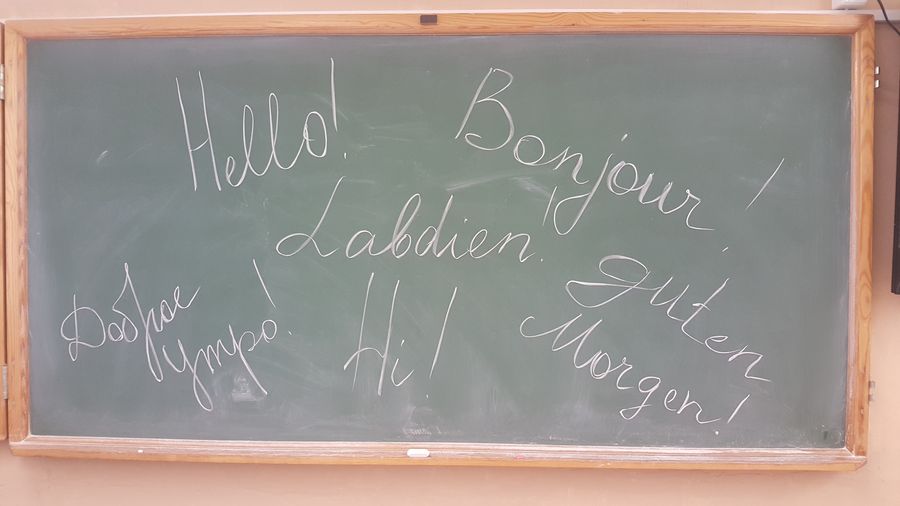 Hello!
Bonjour!
Labdien!
Доброе
утро!
Hi!
guten
Morgen!